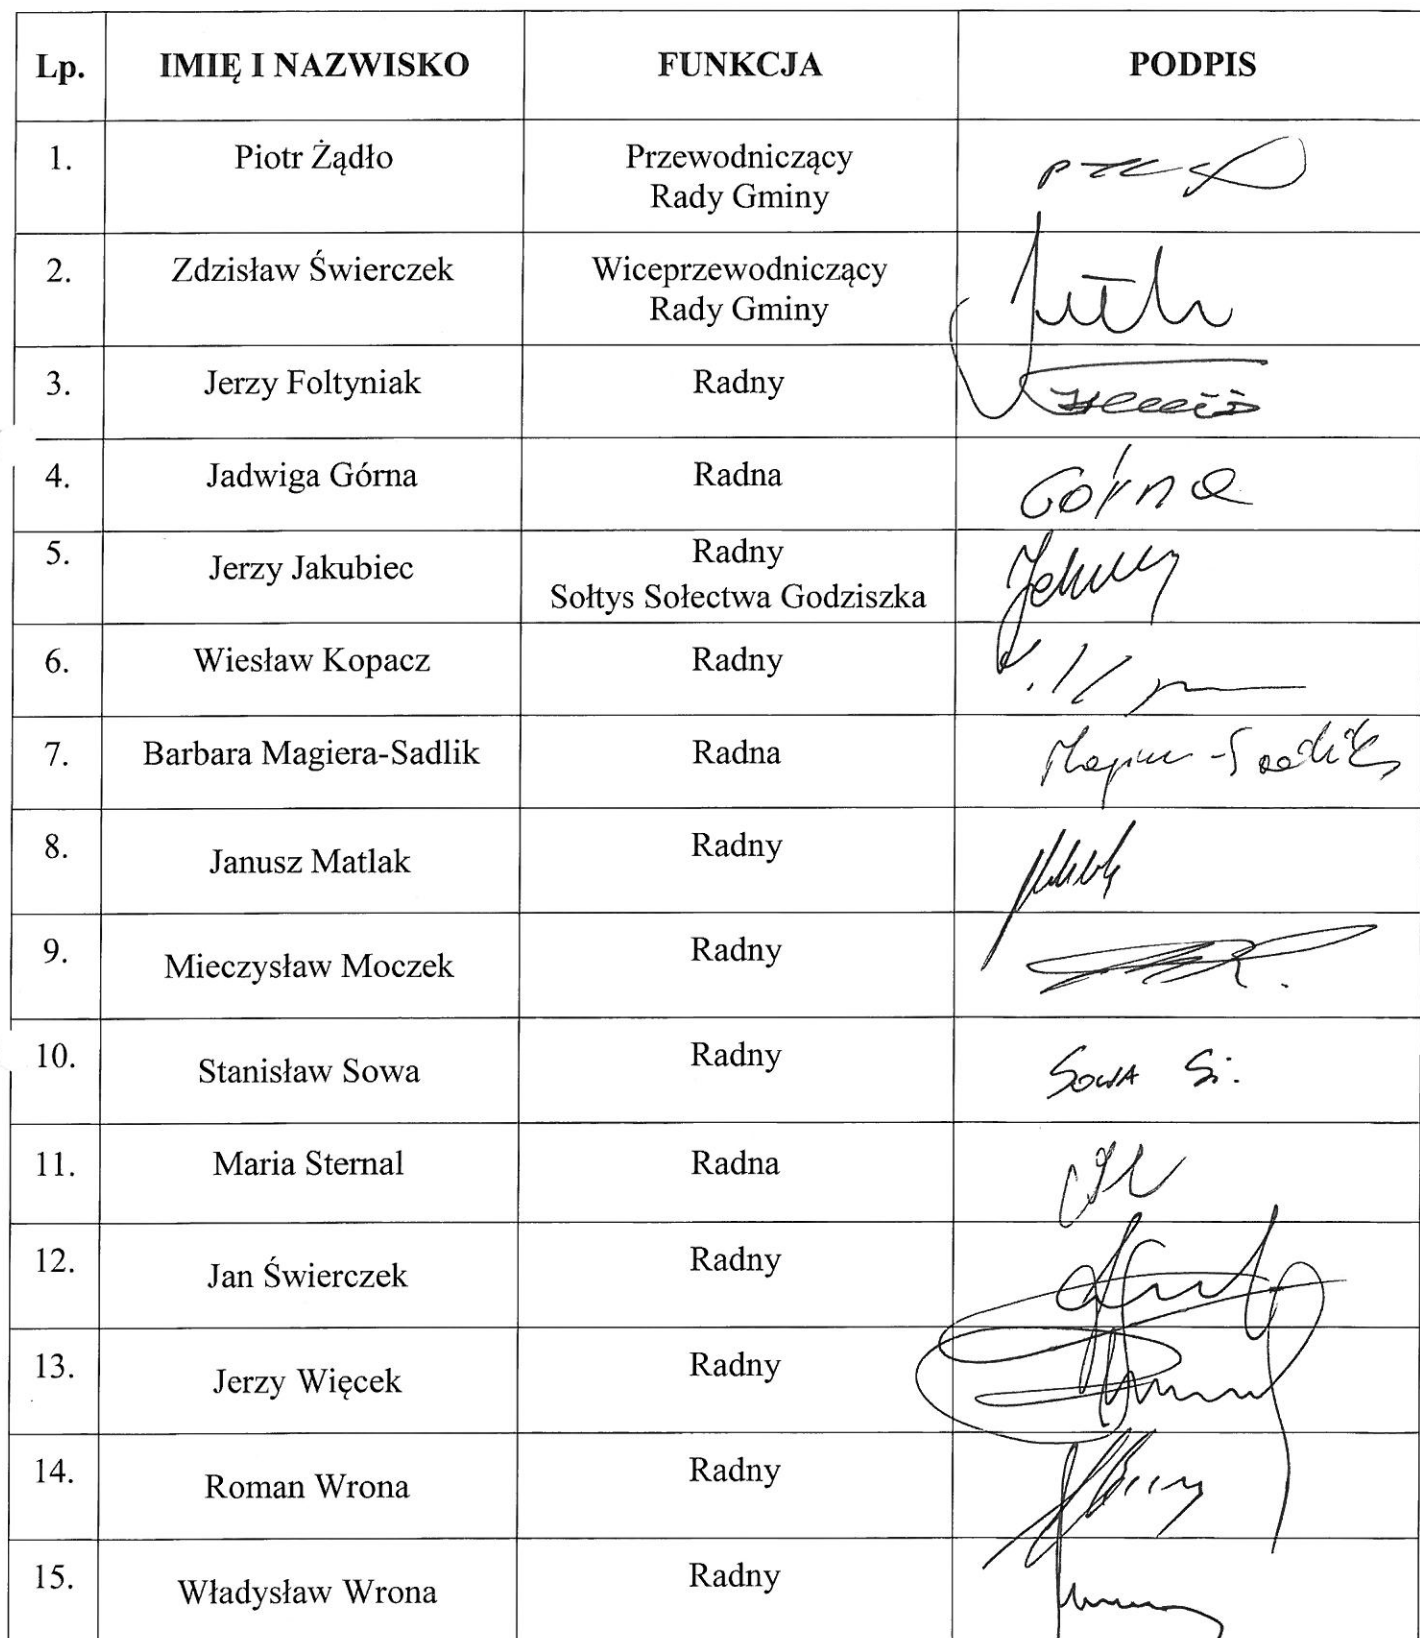 Lp. IMIĘ I NAZWISKO FUNKCJA PODPIS
1. Piotr Żądło Przewodniczący
Rady Gminy
2. Zdzisław Świerczek Wiceprzewodniczący
Rady Gminy
3. Jerzy Foltyniak Radny
4. Jadwiga Górna Radna Górna
5. Jerzy Jakubiec Radny
Sołtys Sołectwa Godziszka
6. Wiesław Kopacz Radny
7. Barbara Magiera-Sadlik Radna
8. Janusz Matlak Radny
9. Mieczysław Moczek Radny
10. Stanisław Sowa Radny Sowa
11. Maria Sternal Radna
12. Jan Świerczek Radny
13. Jerzy Więcek Radny
14. Roman Wrona Radny
15. Władysław Wrona Radny